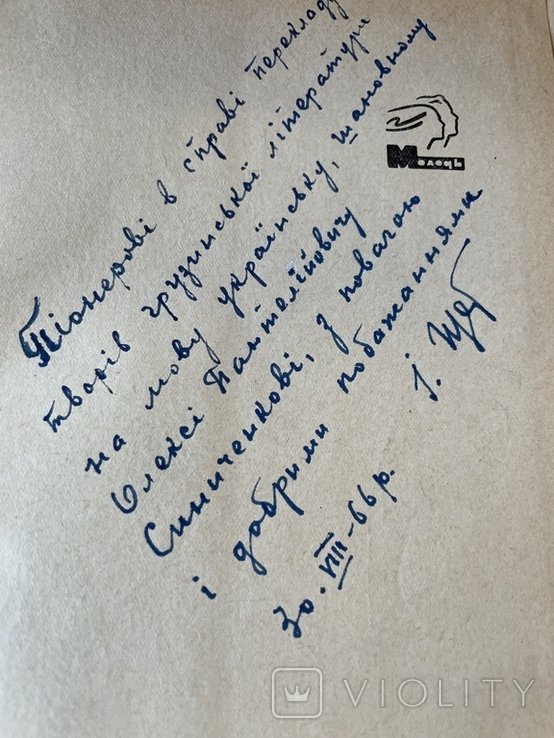 Піонерові в справі перекладу
творів грузинської літератури
на мову українську, шановному
Олексі Пантелійовичу
Синиченкові, з повагою
і добрими побажаннями
30.VIII-66 р.
Молодь
VIOLITY